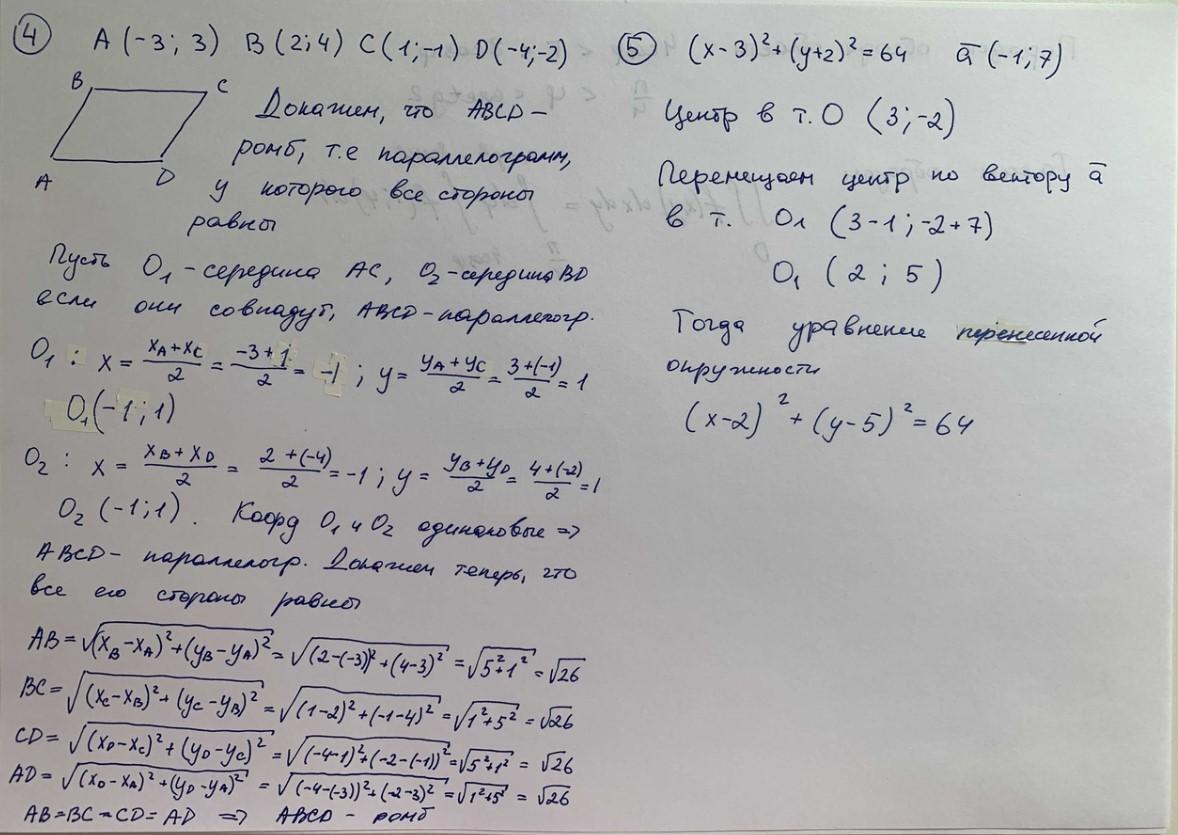 ④ A (-3; 3) B (2; 4) C (1; -1) D (-4; -2)
B C
A D
Докажем, что ABCD –
ромб, т.е параллелограмм,
у которого все стороны
равны
Пусть O₁ – середина AC, O₂ – середина BD
если они совпадут, ABCD – параллелогр.
O₁ : x = (x_A + x_C)/2 = (-3 + 1)/2 = -1 ; y = (y_A + y_C)/2 = (3 + (-1))/2 = 1
O₁ (-1 ; 1)
O₂ : x = (x_B + x_D)/2 = (2 + (-4))/2 = -1 ; y = (y_B + y_D)/2 = (4 + (-2))/2 = 1
O₂ (-1 ; 1) . Коорд O₁ и O₂ одинаковые =>
ABCD – параллелогр. Докажем теперь, что
все его стороны равны
AB = √((x_B – x_A)² + (y_B – y_A)²) = √((2 – (-3))² + (4 – 3)²) = √(5² + 1²) = √26
BC = √((x_C – x_B)² + (y_C – y_B)²) = √((1 – 2)² + (-1 – 4)²) = √(1² + 5²) = √26
CD = √((x_D – x_C)² + (y_D – y_C)²) = √((-4 – 1)² + (-2 – (-1))²) = √(5² + 1²) = √26
AD = √((x_D – x_A)² + (y_D – y_A)²) = √((-4 – (-3))² + (-2 – 3)²) = √(1² + 5²) = √26
AB = BC = CD = AD => ABCD – ромб
⑤ (x – 3)² + (y + 2)² = 64 a̅ (-1; 7)
Центр в т. O (3; -2)
Перемещаем центр по вектору a̅
в т. O₁ (3 – 1 ; -2 + 7)
O₁ (2 ; 5)
Тогда уравнение перенесенной
окружности
(x – 2)² + (y – 5)² = 64